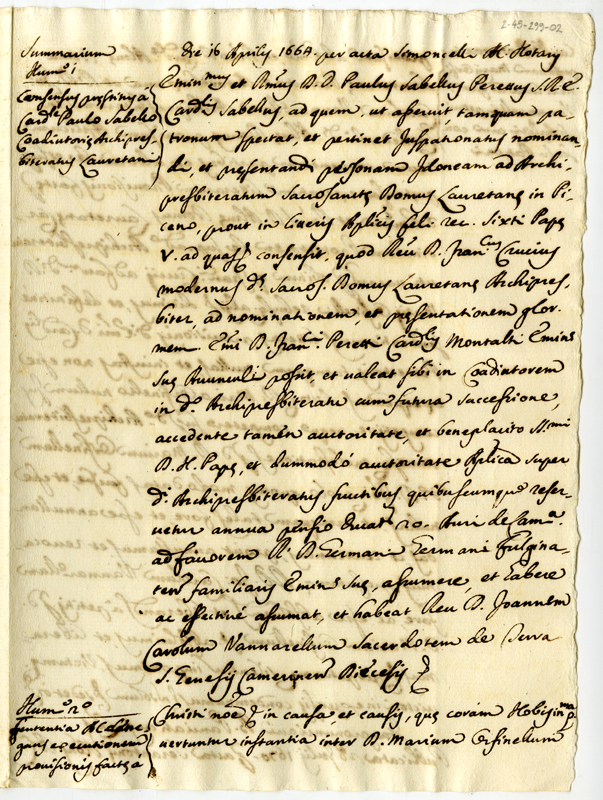 2-45-299-02
Summarium
Num.º 1
Consensus præstitus a
Card.le Paulo Sabello
Coadiutoris Archipres-
biteratus Lauretani
Die 16 Aprilis 1664. per acta Simoncelli N. Notarij
Emin.mus et R.mus D. D. Paulus Sabellus Perettus S.R.E.
Card.lis Sabellus, ad quem, ut asseruit tamquam pa-
tronum spectat, et pertinet Juspatronatus nominan-
di, et presentandi personam Idoneam ad Archi-
presbiteratum Sacrosanctę Domus Lauretanę in Pi-
ceno, prout in literis Ap.licis feli: rec. Sixti Papę
V. ad quas consensit, quod Reu. D. Fran.cus Crucius
modernus d.ę Sacros. Domus Lauretanę Archipres-
biter, ad nominationem, et pręsentationem glor.
mem. E.mi D. Fran.ci Peretti Card.lis Montalti Emin.ę
Suę Auunculi possit, et ualeat sibi in Coadiutorem
in d.º Archipresbiteratu cum futura successione,
accedente tamen auctoritate, et beneplacito SS.mi
D. N. Papę, et dummodó auctoritate Ap.lica super
d.i Archipresbiteratus fructibus quibuscumque reser-
uetur annua pensio ducat. 20. Auri de Cam.a
ad fauorem R. D. Germani Germani fulgina-
ten. familiaris Emin.ę Suę, assumere, et habere
ac effectiué assumat, et habeat Reu. D. Joannem
Carolum Vannarellum Sacerdotem de Serra
S. Genesij Camerinen. Dięcesis
Num.º 2º
Sententia
executionem
prouisionis factę á
Christi noe in causa, et causis, quę coram Nobis in p.ma
uertuntur instantia inter D. Marium Orsinellum